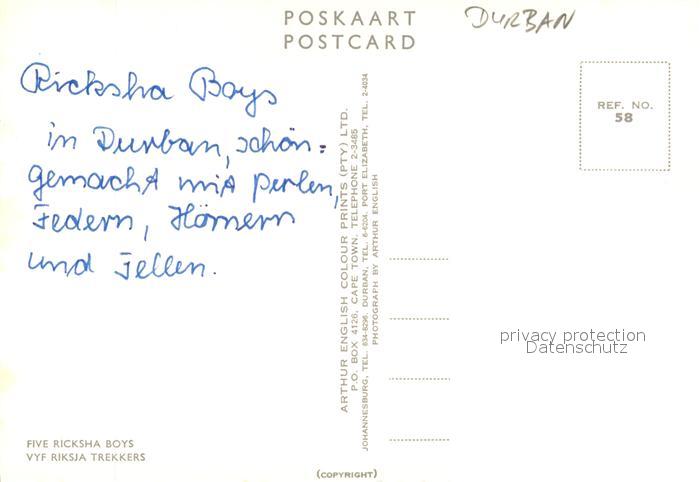 POSKAART
POSTCARD
DURBAN
Ricksha Boys
in Durban, schön=
gemacht mit Perlen,
Federn, Hörnern
und Fellen.
REF. NO.
58
ARTHUR ENGLISH COLOUR PRINTS (PTY) LTD.
P.O. BOX 4126, CAPE TOWN, TELEPHONE 2-3485
JOHANNESBURG, TEL. 834-6296. DURBAN, TEL. 6-6204. PORT ELIZABETH, TEL. 2-4034
PHOTOGRAPH BY ARTHUR ENGLISH
privacy protection
Datenschutz
FIVE RICKSHA BOYS
VYF RIKSJA TREKKERS
(COPYRIGHT)